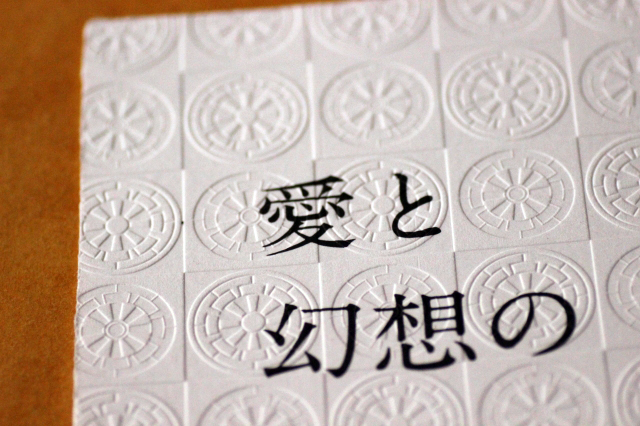 愛と
幻想の